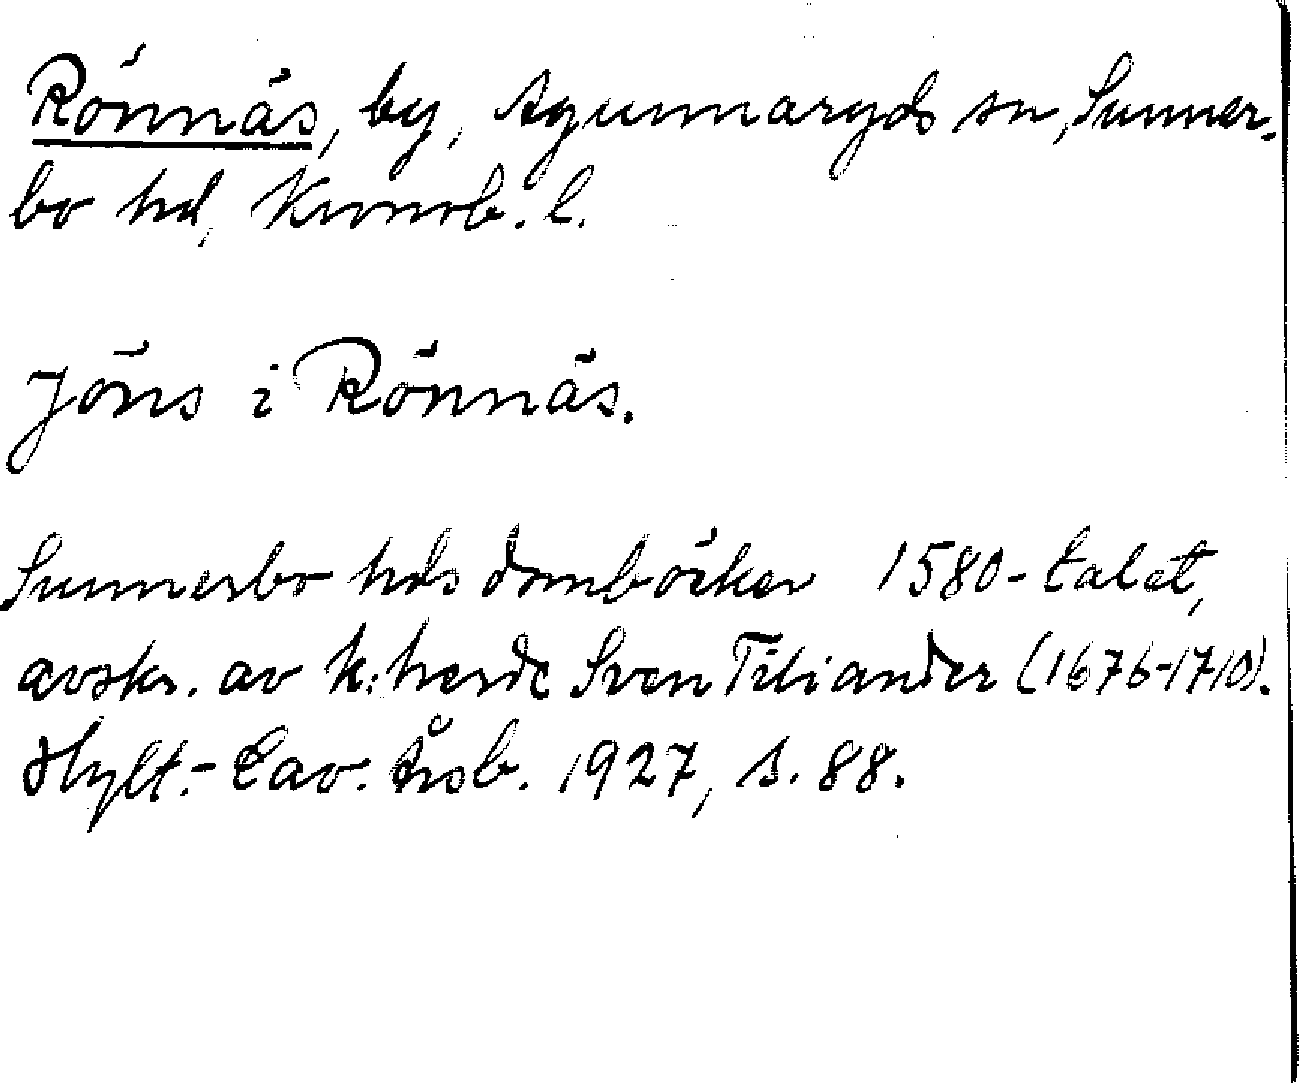 Rönnäs, by, Agunnaryds sn, Sunner-
bo hd, Kronob. l.
Jöns i Rönnäs.
Sunnerbo hds domböcker 1580-talet,
avskr. av k:herde Sven Tiliander (1676-1710).
Hylt.-Cav. Årsb. 1927, s. 88.